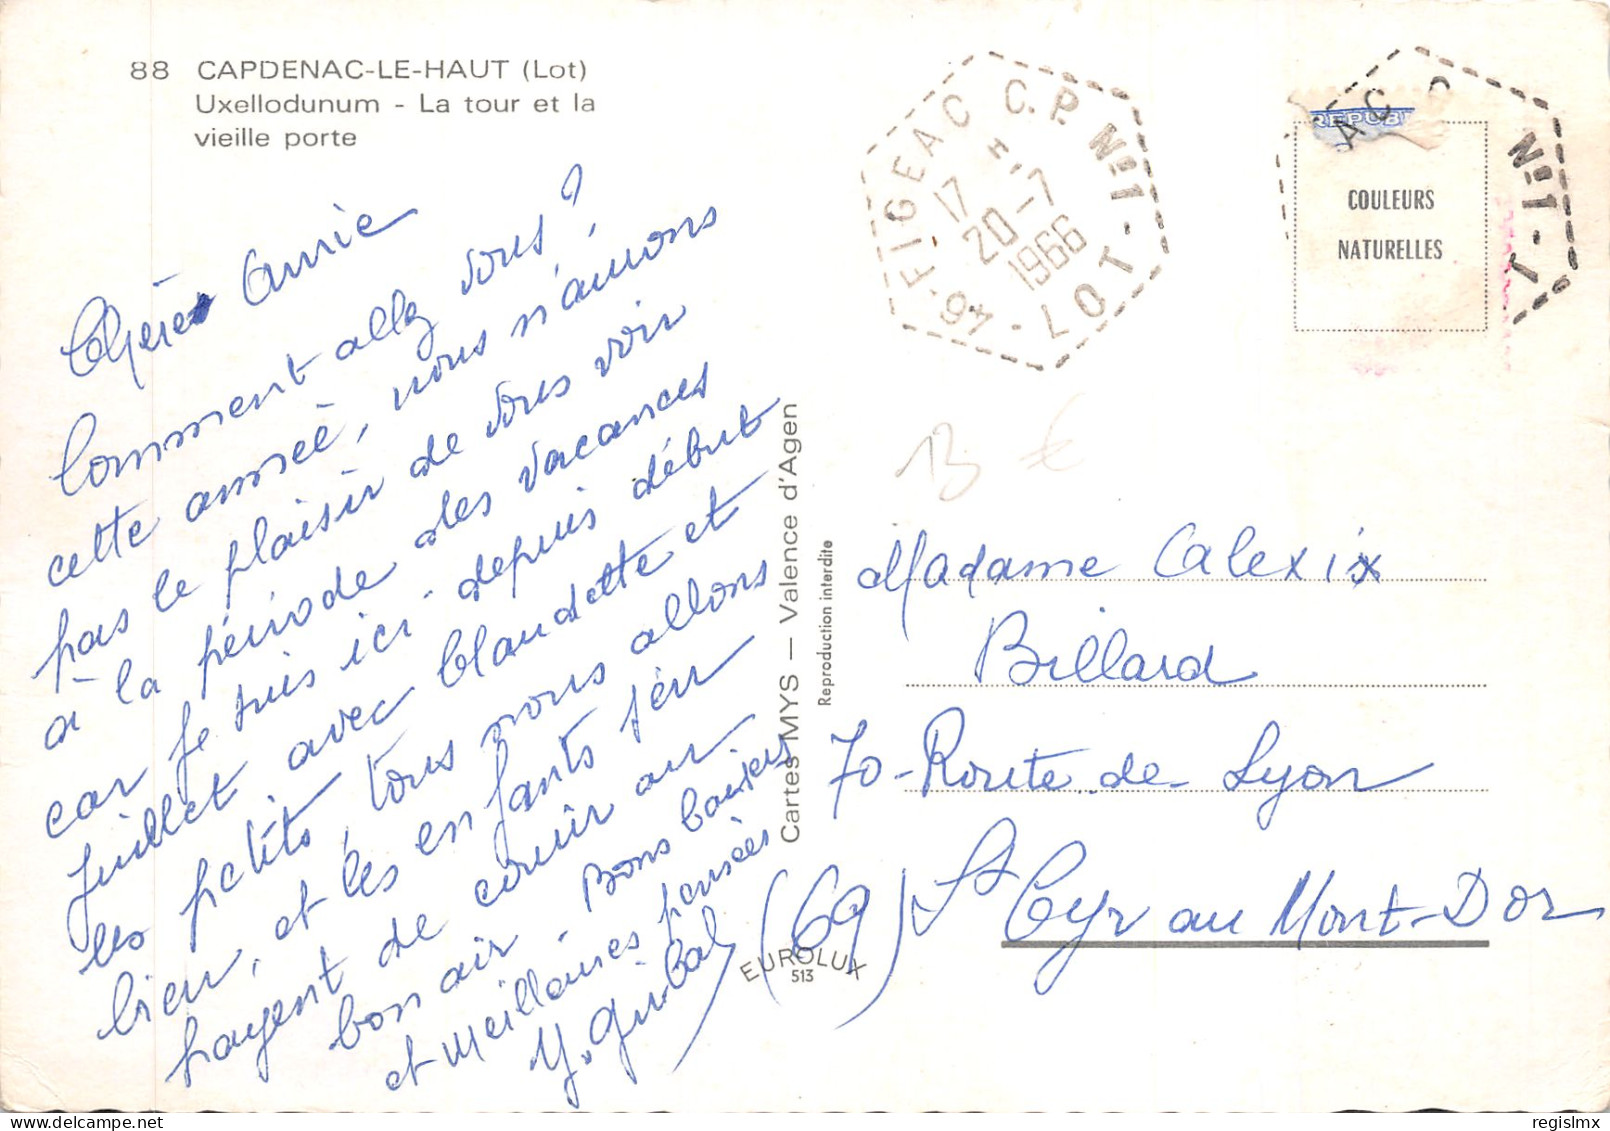 88 CAPDENAC-LE-HAUT (Lot)
Uxellodunum - La tour et la
vieille porte
Chère Annie
Comment allez vous?
cette année, nous n'aurons
pas le plaisir de vous voir
à la période des vacances
car je suis ici depuis début
Juillet avec Claudette et
les petits, tous nous allons
bien, et les enfants s'en
payent de courir au
bon air. Bons baisers
et meilleures pensées
Y. Guibal
Cartes MYS — Valence d'Agen
Reproduction interdite
EUROLUX
513
46-FIGEAC C.P. N°1-LOT
17 H
20-7
1966
REPUB
AC P N°1-L
COULEURS
NATURELLES
13 €
Madame Alexix
Billard
70-Route de Lyon
(69) St Cyr au Mont-Dor
regislmx